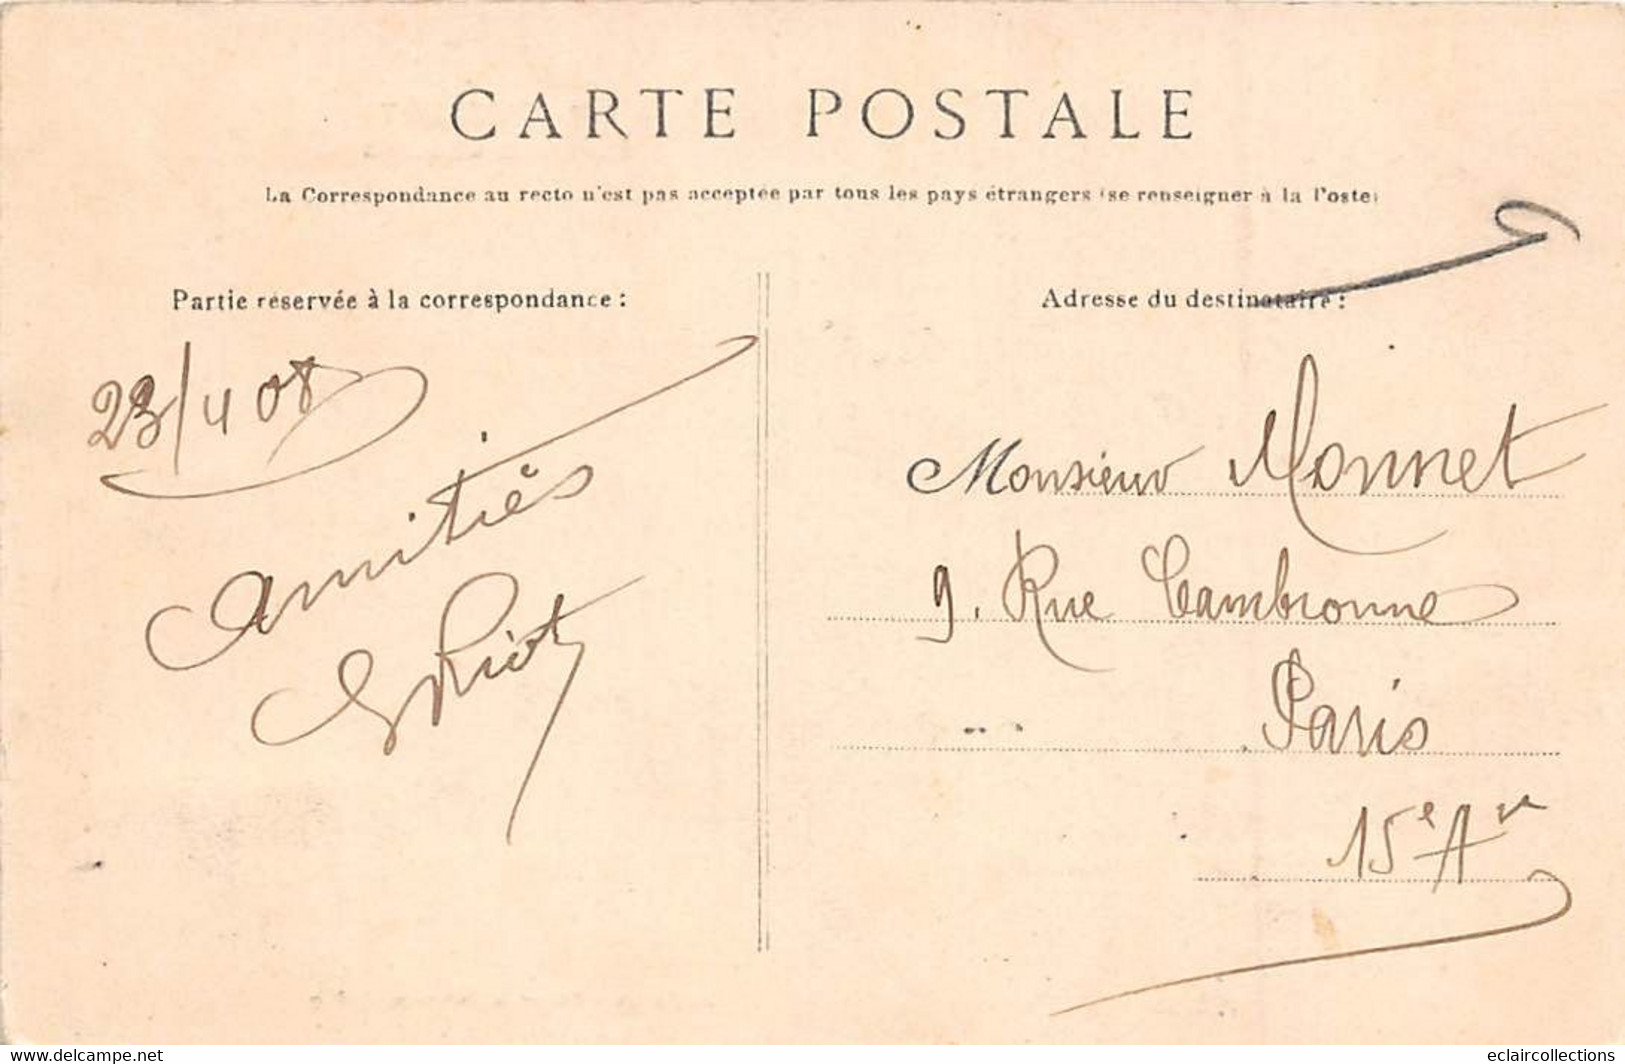 CARTE POSTALE
La Correspondance au recto n'est pas acceptée par tous les pays étrangers (se renseigner à la Poste)
Partie réservée à la correspondance :
23/4 08
Amitiés
Adresse du destinataire :
Monsieur Monnet
9. Rue Cambronne
Paris
15e Ar
www.delcampe.net
eclaircollections